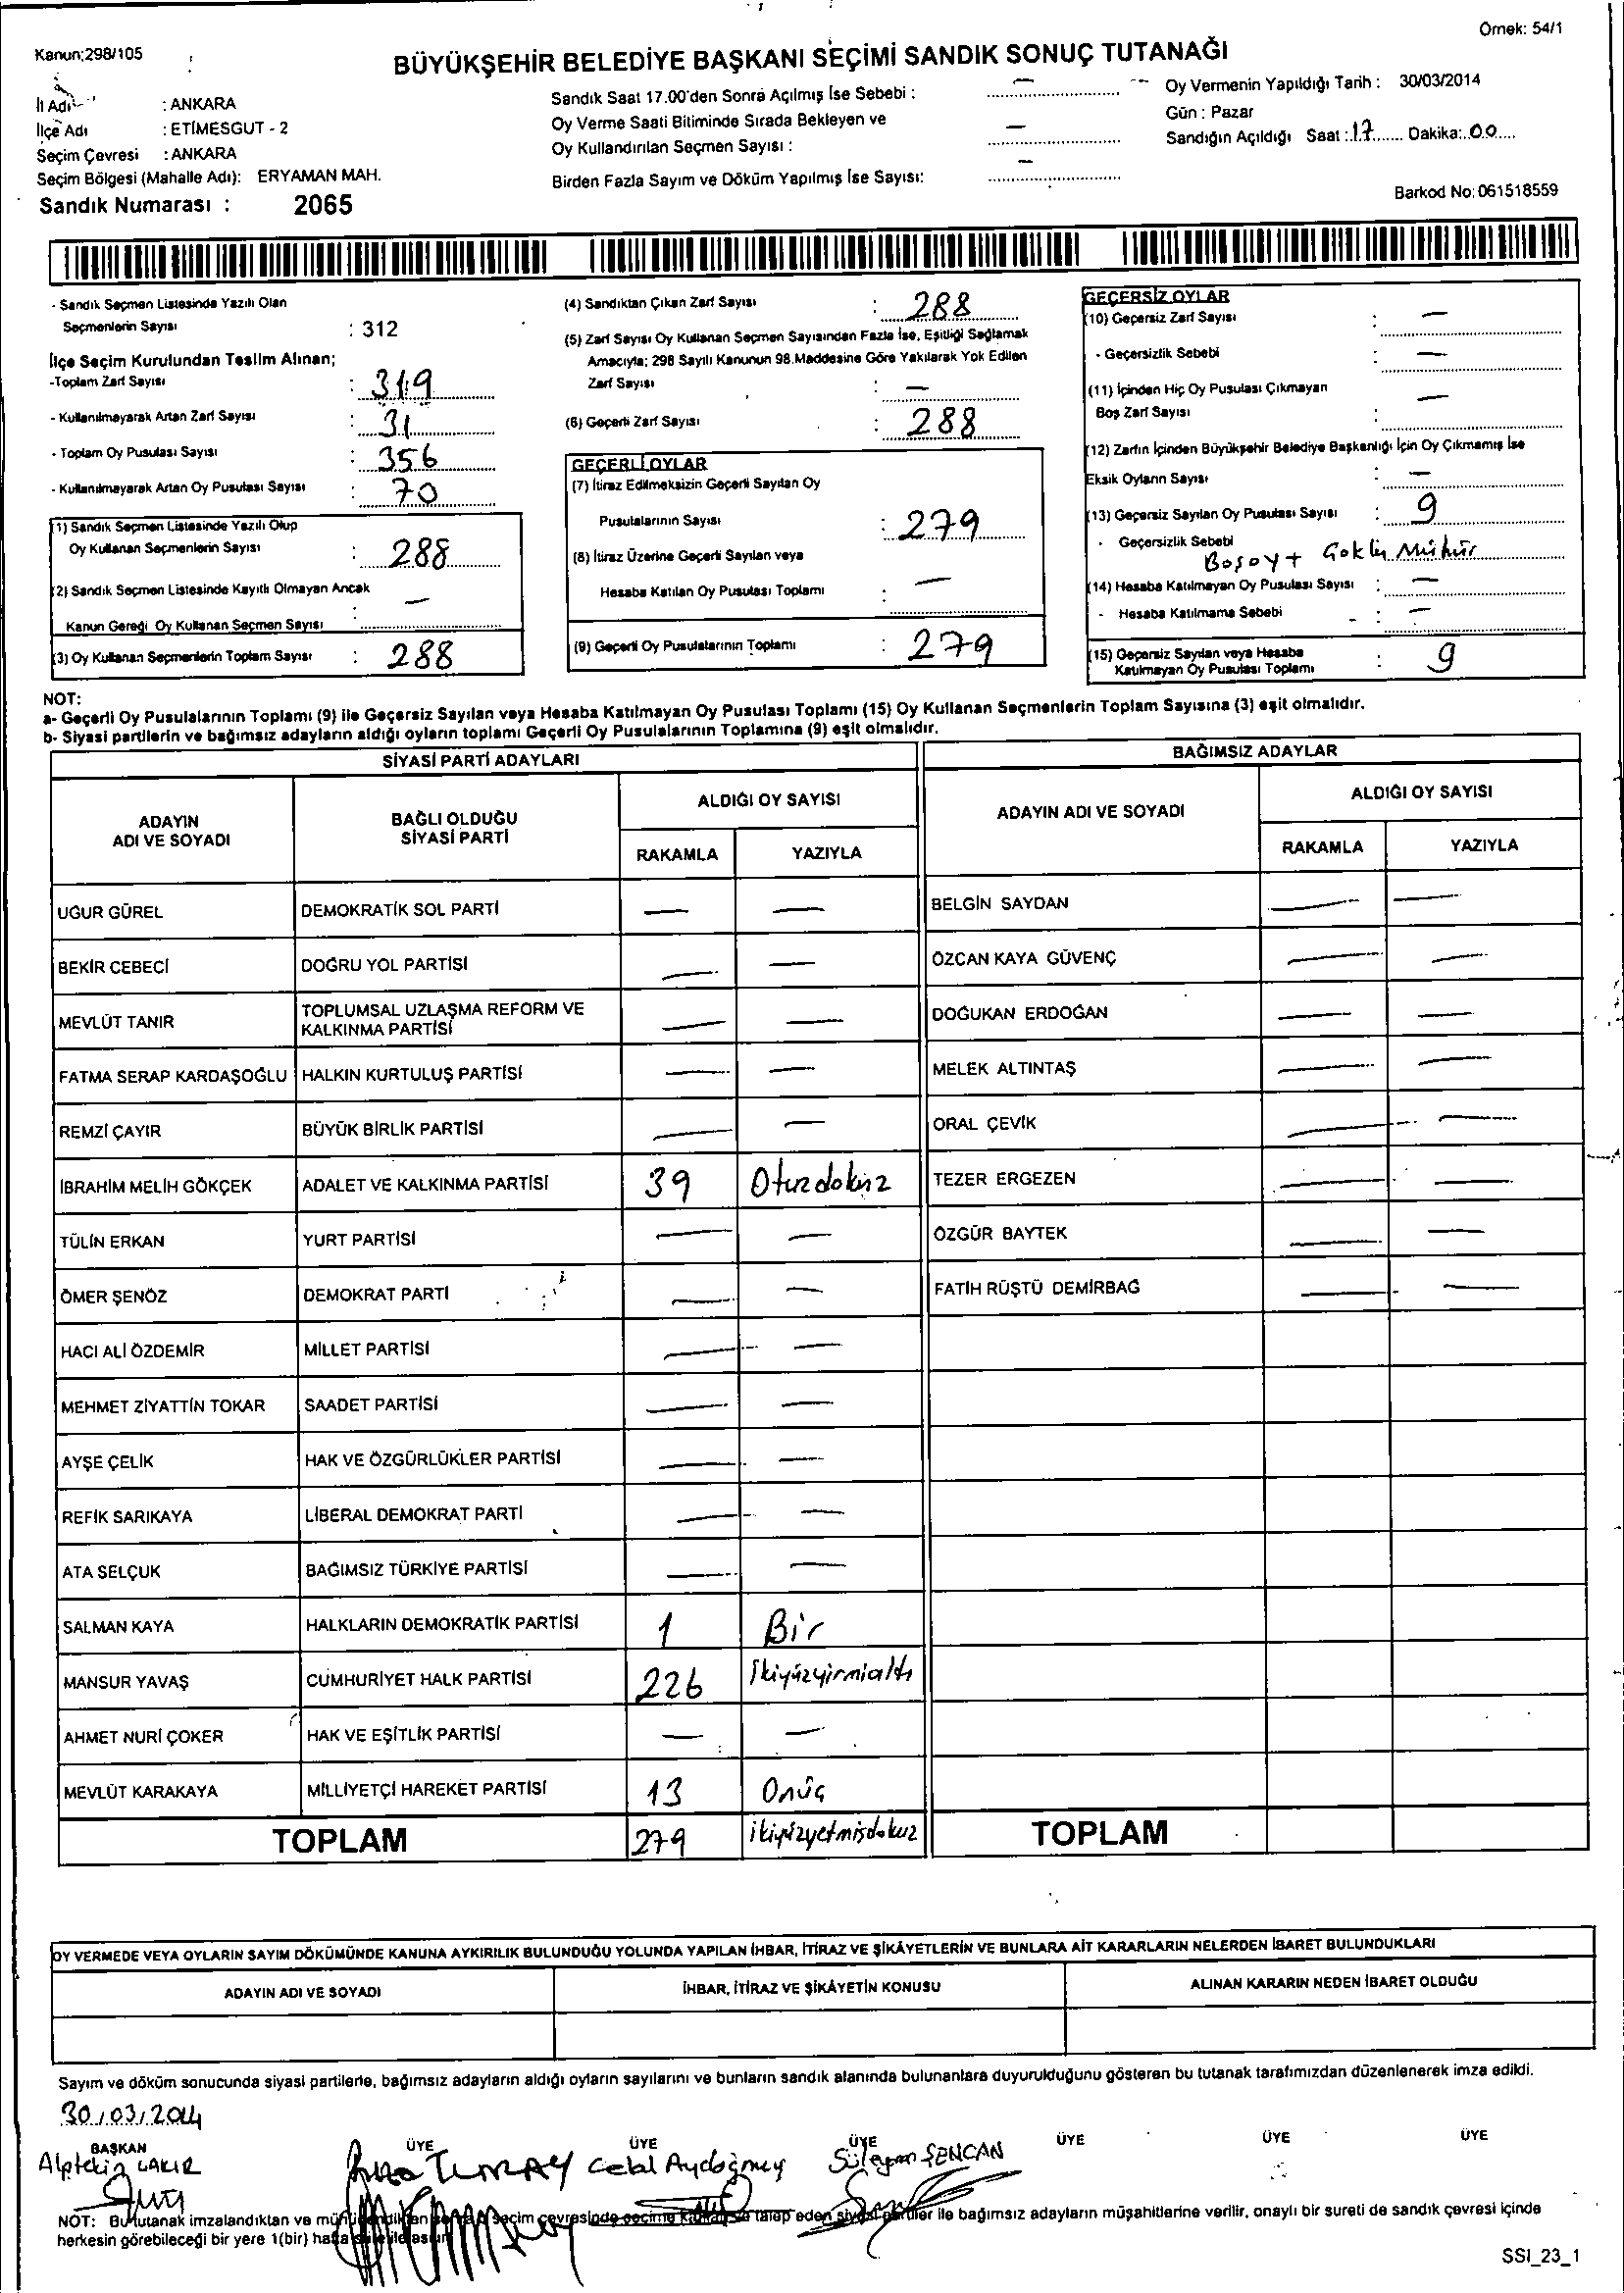 Örnek: 54/1
Kanun:298/105
BÜYÜKŞEHİR BELEDİYE BAŞKANI SEÇİMİ SANDIK SONUÇ TUTANAĞI
İl Adı : ANKARA
İlçe Adı : ETİMESGUT - 2
Seçim Çevresi : ANKARA
Seçim Bölgesi (Mahalle Adı): ERYAMAN MAH.
Sandık Numarası : 2065
Sandık Saat 17.00'den Sonra Açılmış İse Sebebi : —
Oy Verme Saati Bitiminde Sırada Bekleyen ve
Oy Kullandırılan Seçmen Sayısı : —
Birden Fazla Sayım ve Döküm Yapılmış İse Sayısı: —
Oy Vermenin Yapıldığı Tarih : 30/03/2014
Gün : Pazar
Sandığın Açıldığı Saat : 17 Dakika: 00
Barkod No: 061518559
- Sandık Seçmen Listesinde Yazılı Olan
Seçmenlerin Sayısı : 312
İlçe Seçim Kurulundan Teslim Alınan;
-Toplam Zarf Sayısı : 319
- Kullanılmayarak Artan Zarf Sayısı : 31
- Toplam Oy Pusulası Sayısı : 356
- Kullanılmayarak Artan Oy Pusulası Sayısı : 70
(1) Sandık Seçmen Listesinde Yazılı Olup
Oy Kullanan Seçmenlerin Sayısı : 288
(2) Sandık Seçmen Listesinde Kayıtlı Olmayan Ancak
Kanun Gereği Oy Kullanan Seçmen Sayısı : —
(3) Oy Kullanan Seçmenlerin Toplam Sayısı : 288
(4) Sandıktan Çıkan Zarf Sayısı : 288
(5) Zarf Sayısı Oy Kullanan Seçmen Sayısından Fazla İse, Eşitliği Sağlamak
Amacıyla; 298 Sayılı Kanunun 98.Maddesine Göre Yakılarak Yok Edilen
Zarf Sayısı : —
(6) Geçerli Zarf Sayısı : 288
GEÇERLİ OYLAR
(7) İtiraz Edilmeksizin Geçerli Sayılan Oy
Pusulalarının Sayısı : 279
(8) İtiraz Üzerine Geçerli Sayılan veya
Hesaba Katılan Oy Pusulası Toplamı : —
(9) Geçerli Oy Pusulalarının Toplamı : 279
GEÇERSİZ OYLAR
(10) Geçersiz Zarf Sayısı : —
- Geçersizlik Sebebi : —
(11) İçinden Hiç Oy Pusulası Çıkmayan
Boş Zarf Sayısı : —
(12) Zarfın İçinden Büyükşehir Belediye Başkanlığı İçin Oy Çıkmamış İse
Eksik Oyların Sayısı : —
(13) Geçersiz Sayılan Oy Pusulası Sayısı : 9
- Geçersizlik Sebebi Boşoy + Çoklu Mühür
(14) Hesaba Katılmayan Oy Pusulası Sayısı : —
- Hesaba Katılmama Sebebi : —
(15) Geçersiz Sayılan veya Hesaba
Katılmayan Oy Pusulası Toplamı : 9
NOT:
a- Geçerli Oy Pusulalarının Toplamı (9) ile Geçersiz Sayılan veya Hesaba Katılmayan Oy Pusulası Toplamı (15) Oy Kullanan Seçmenlerin Toplam Sayısına (3) eşit olmalıdır.
b- Siyasi partilerin ve bağımsız adayların aldığı oyların toplamı Geçerli Oy Pusulalarının Toplamına (9) eşit olmalıdır.
SİYASİ PARTİ ADAYLARI
ADAYIN ADI VE SOYADI
BAĞLI OLDUĞU SİYASİ PARTİ
ALDIĞI OY SAYISI
RAKAMLA YAZIYLA
UĞUR GÜREL DEMOKRATİK SOL PARTİ — —
BEKİR CEBECİ DOĞRU YOL PARTİSİ — —
MEVLÜT TANIR TOPLUMSAL UZLAŞMA REFORM VE KALKINMA PARTİSİ — —
FATMA SERAP KARDAŞOĞLU HALKIN KURTULUŞ PARTİSİ — —
REMZİ ÇAYIR BÜYÜK BİRLİK PARTİSİ — —
İBRAHİM MELİH GÖKÇEK ADALET VE KALKINMA PARTİSİ 39 Otuzdokuz
TÜLİN ERKAN YURT PARTİSİ — —
ÖMER ŞENÖZ DEMOKRAT PARTİ — —
HACI ALİ ÖZDEMİR MİLLET PARTİSİ — —
MEHMET ZİYATTİN TOKAR SAADET PARTİSİ — —
AYŞE ÇELİK HAK VE ÖZGÜRLÜKLER PARTİSİ — —
REFİK SARIKAYA LİBERAL DEMOKRAT PARTİ — —
ATA SELÇUK BAĞIMSIZ TÜRKİYE PARTİSİ — —
SALMAN KAYA HALKLARIN DEMOKRATİK PARTİSİ 1 Bir
MANSUR YAVAŞ CUMHURİYET HALK PARTİSİ 226 İkiyüzyirmialtı
AHMET NURİ ÇOKER HAK VE EŞİTLİK PARTİSİ — —
MEVLÜT KARAKAYA MİLLİYETÇİ HAREKET PARTİSİ 13 Onüç
TOPLAM 279 ikiyüzyetmişdokuz
BAĞIMSIZ ADAYLAR
ADAYIN ADI VE SOYADI
ALDIĞI OY SAYISI
RAKAMLA YAZIYLA
BELGİN SAYDAN — —
ÖZCAN KAYA GÜVENÇ — —
DOĞUKAN ERDOĞAN — —
MELEK ALTINTAŞ — —
ORAL ÇEVİK — —
TEZER ERGEZEN — —
ÖZGÜR BAYTEK — —
FATİH RÜŞTÜ DEMİRBAĞ — —
TOPLAM
OY VERMEDE VEYA OYLARIN SAYIM DÖKÜMÜNDE KANUNA AYKIRILIK BULUNDUĞU YOLUNDA YAPILAN İHBAR, İTİRAZ VE ŞİKÂYETLERİN VE BUNLARA AİT KARARLARIN NELERDEN İBARET BULUNDUKLARI
ADAYIN ADI VE SOYADI İHBAR, İTİRAZ VE ŞİKÂYETİN KONUSU ALINAN KARARIN NEDEN İBARET OLDUĞU
Sayım ve döküm sonucunda siyasi partilerle, bağımsız adayların aldığı oyların sayılarını ve bunların sandık alanında bulunanlara duyurulduğunu gösteren bu tutanak tarafımızdan düzenlenerek imza edildi.
30/03/2014
BAŞKAN ÜYE ÜYE ÜYE ÜYE ÜYE ÜYE
Alptekin ÇAKIR TUNRAY Celal Aydoğmuş Süleyman ŞENCAN
NOT: Bu tutanak imzalandıktan ve seçim çevresinde seçime talep eden siyasi partiler ile bağımsız adayların müşahitlerine verilir, onaylı bir sureti de sandık çevresi içinde
herkesin görebileceği bir yere 1(bir) hafta
SSI_23_1